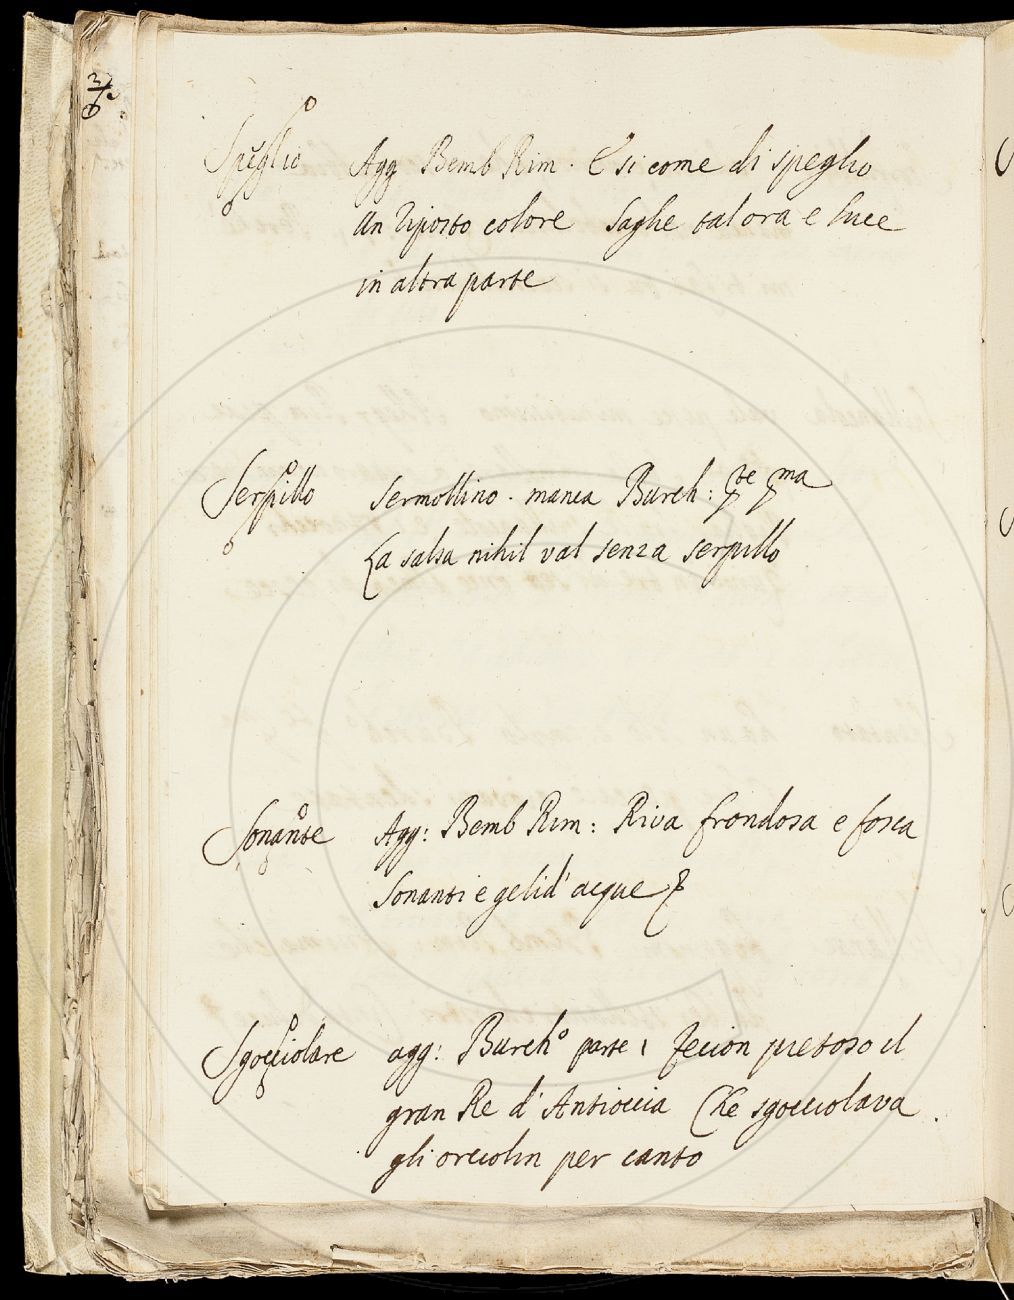 Speglio Agg Bemb Rim. E si come di speglio
Un riposto colore Saghe talora e luce
in altra parte
Serpillo sermollino. manca Burch: pte pma
La salsa nihil val senza serpillo
Sonante Agg: Bemb Rim: Riva frondosa e fosca
Sonanti e gelid' acque
Sgocciolare agg: Burch° parte 1 fecion pietoso il
gran Re d' Antioccia Che sgocciolava
gli orciolin per canto